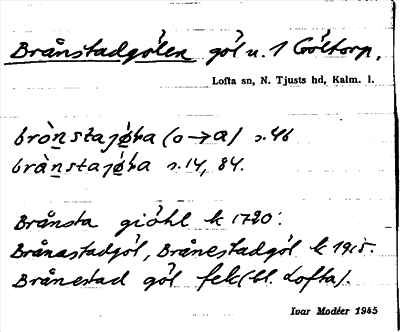 Brånstadgölen göl u. 1 Göltorp.
Lofta sn, N. Tjusts hd, Kalm. l.
brònstajǿḷa (o→a) s. 46
brànstajǿḷa s. 14, 84.
Brånsta giöhl k 1720.
Brånastadgöl, Brånestadgöl k 1915.
Brånestad göl fek (bl. Lofta).
Ivar Modéer 1945